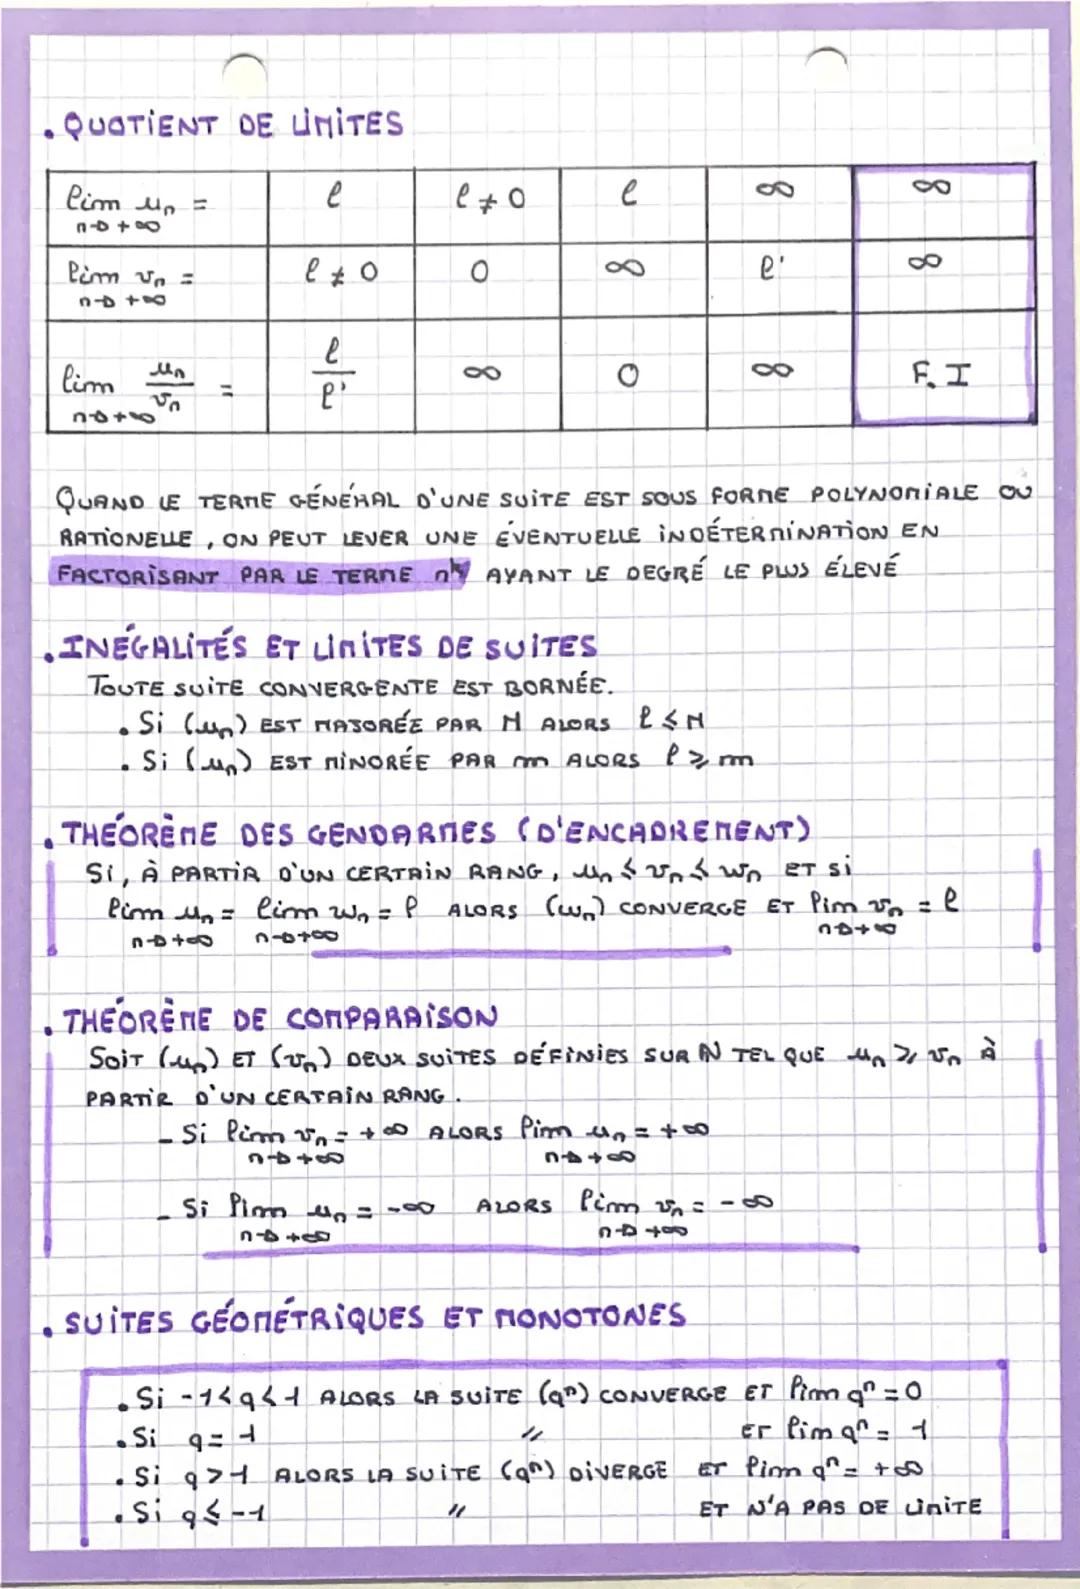 . QUOTIENT DE LIMITES
lim uₙ = ℓ ℓ ≠ 0 ℓ ∞ ∞
n→+∞
lim vₙ = ℓ ≠ 0 0 ∞ ℓ' ∞
n→+∞
lim uₙ/vₙ = ℓ/ℓ' ∞ 0 ∞ F.I
n→+∞
QUAND LE TERME GÉNÉRAL D'UNE SUITE EST SOUS FORME POLYNOMIALE OU
RATIONELLE, ON PEUT LEVER UNE ÉVENTUELLE INDÉTERMINATION EN
FACTORISANT PAR LE TERME nᵏ AYANT LE DEGRÉ LE PLUS ÉLEVÉ
. INÉGALITÉS ET LIMITES DE SUITES
TOUTE SUITE CONVERGENTE EST BORNÉE.
. Si (uₙ) EST MAJORÉE PAR M ALORS ℓ ≤ M
. Si (uₙ) EST MINORÉE PAR m ALORS ℓ ≥ m
. THÉORÈME DES GENDARMES (D'ENCADREMENT)
Si, À PARTIR D'UN CERTAIN RANG, uₙ ≤ vₙ ≤ wₙ ET Si
lim uₙ = lim wₙ = ℓ ALORS (wₙ) CONVERGE ET lim vₙ = ℓ
n→+∞ n→+∞ n→+∞
. THÉORÈME DE COMPARAISON
SOIT (uₙ) ET (vₙ) DEUX SUITES DÉFINIES SUR ℕ TEL QUE uₙ ≥ vₙ À
PARTIR D'UN CERTAIN RANG.
- Si lim vₙ = +∞ ALORS lim uₙ = +∞
n→+∞ n→+∞
- Si lim uₙ = -∞ ALORS lim vₙ = -∞
n→+∞ n→+∞
. SUITES GÉOMÉTRIQUES ET MONOTONES
. Si -1<q<1 ALORS LA SUITE (qⁿ) CONVERGE ET lim qⁿ = 0
. Si q = 1 // ET lim qⁿ = 1
. Si q > 1 ALORS LA SUITE (qⁿ) DIVERGE ET lim qⁿ = +∞
. Si q ≤ -1 // ET N'A PAS DE LIMITE